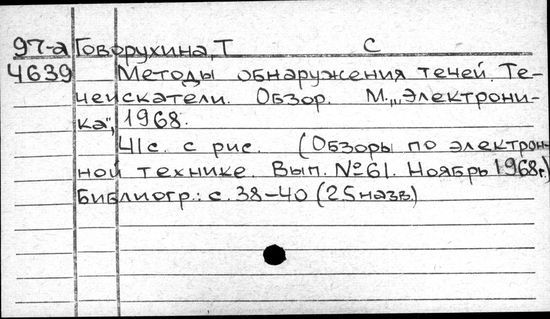 97-а Говорухина, Т С
4639 Методы обнаружения течей. Те-
чеискатели. Обзор. М., "Электрони-
ка", 1968.
41с. с рис. (Обзоры по электрон-
ной технике. Вып. №61. Ноябрь 1968г.)
Библиогр.: с. 38-40 (25 назв)